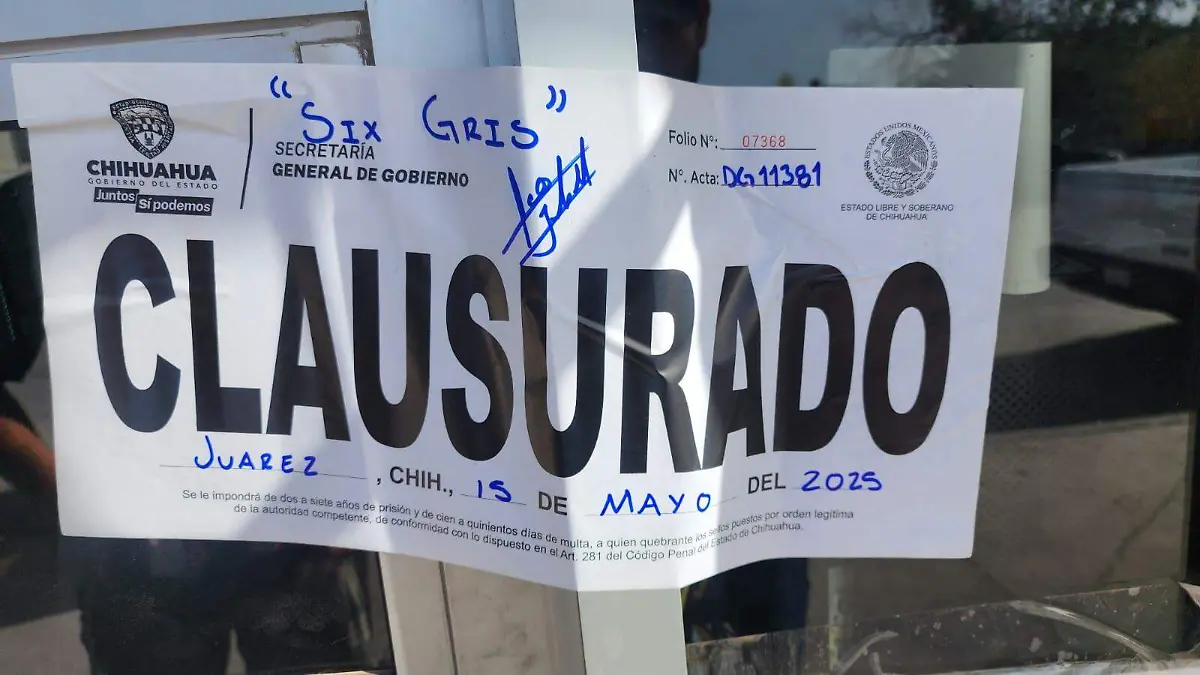 "SIX GRIS"
CHIHUAHUA
GOBIERNO DEL ESTADO
Juntos Sí podemos
SECRETARÍA
GENERAL DE GOBIERNO
Folio Nº: 07368
Nº. Acta: DG11381
ESTADOS UNIDOS MEXICANOS
ESTADO LIBRE Y SOBERANO
DE CHIHUAHUA
CLAUSURADO
JUAREZ, CHIH., 15 DE MAYO DEL 2025
Se le impondrá de dos a siete años de prisión y de cien a quinientos días de multa, a quien quebrante los sellos puestos por orden legítima
de la autoridad competente, de conformidad con lo dispuesto en el Art. 281 del Código Penal del Estado de Chihuahua.